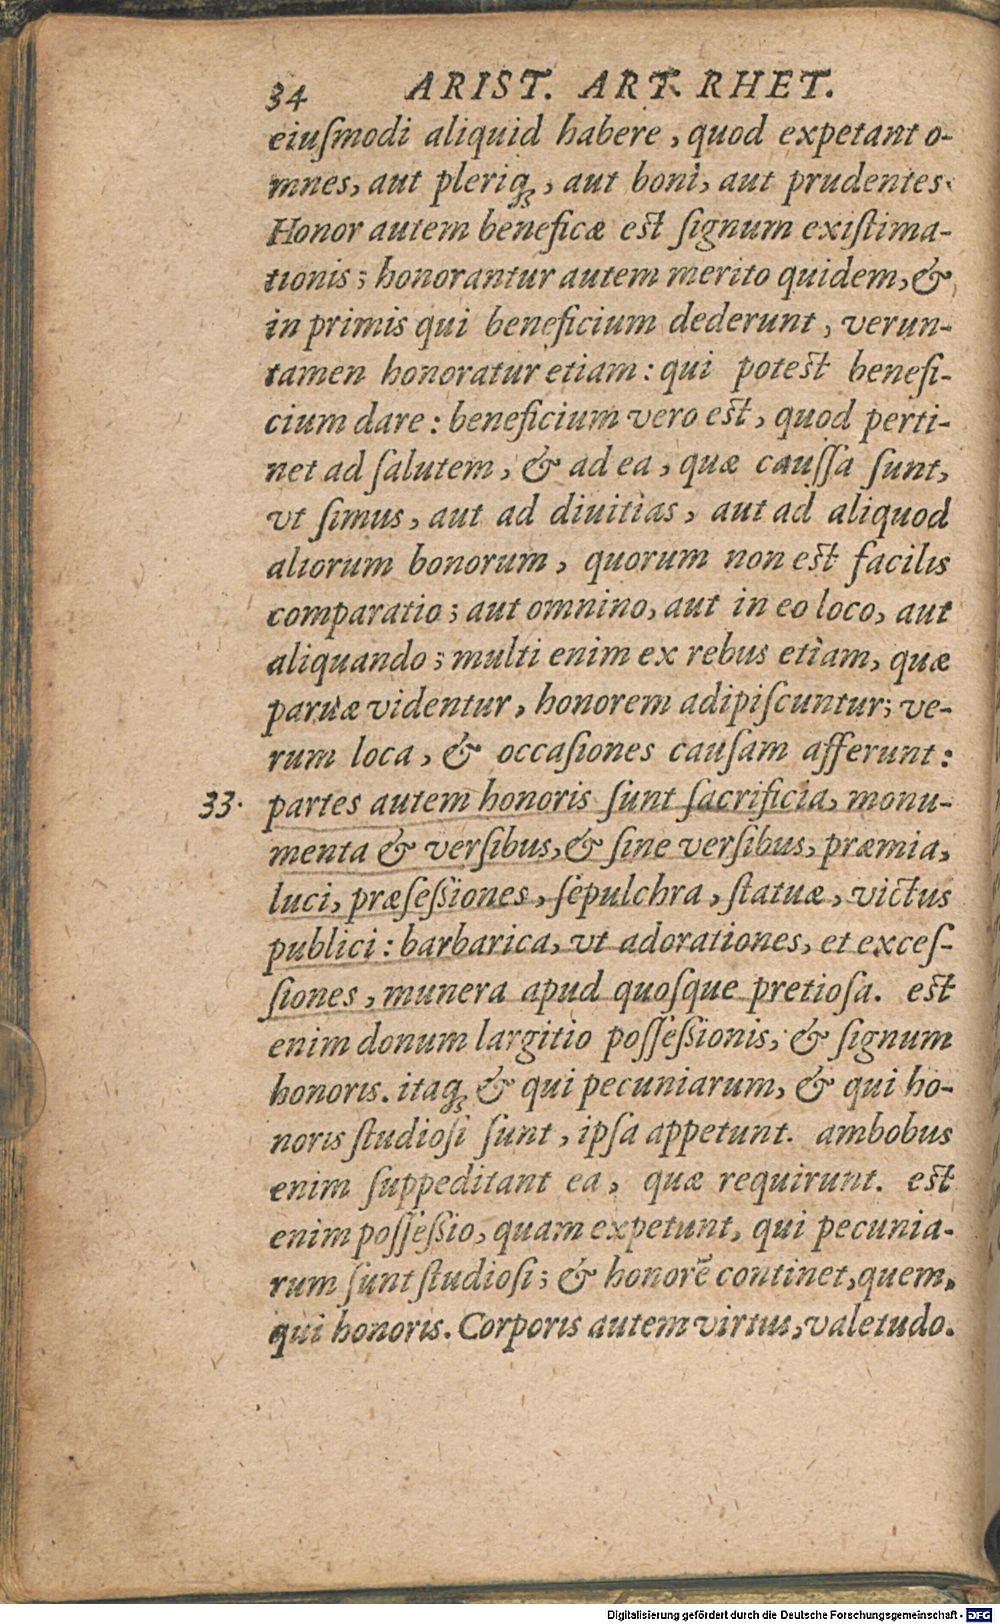 34 ARIST. ART. RHET.
eiuſmodi aliquid habere, quod expetant o-
mnes, aut pleriqꝫ, aut boni, aut prudentes.
Honor autem beneficæ est ſignum exiſtima-
tionis; honorantur autem merito quidem, &
in primis qui beneficium dederunt, verun-
tamen honoratur etiam: qui potest benefi-
cium dare: beneficium vero est, quod perti-
net ad ſalutem, & ad ea, quæ cauſſa ſunt,
vt ſimus, aut ad diuitias, aut ad aliquod
aliorum bonorum, quorum non est facilis
comparatio; aut omnino, aut in eo loco, aut
aliquando; multi enim ex rebus etiam, quæ
paruæ videntur, honorem adipiſcuntur; ve-
rum loca, & occaſiones cauſam afferunt:
33. partes autem honoris ſunt ſacrificia, monu-
menta & verſibus, & ſine verſibus, præmia,
luci, præſeſſiones, ſepulchra, ſtatuæ, victus
publici: barbarica, vt adorationes, et exceſ-
ſiones, munera apud quoſque pretioſa. est
enim donum largitio poſſeſſionis, & ſignum
honoris. itaqꝫ & qui pecuniarum, & qui ho-
noris ſtudioſi ſunt, ipſa appetunt. ambobus
enim ſuppeditant ea, quæ requirunt. est
enim poſſeſſio, quam expetunt, qui pecunia-
rum ſunt ſtudioſi; & honorē continet, quem,
qui honoris. Corporis autem virtus, valetudo.
Digitalisierung gefördert durch die Deutsche Forschungsgemeinschaft - DFG